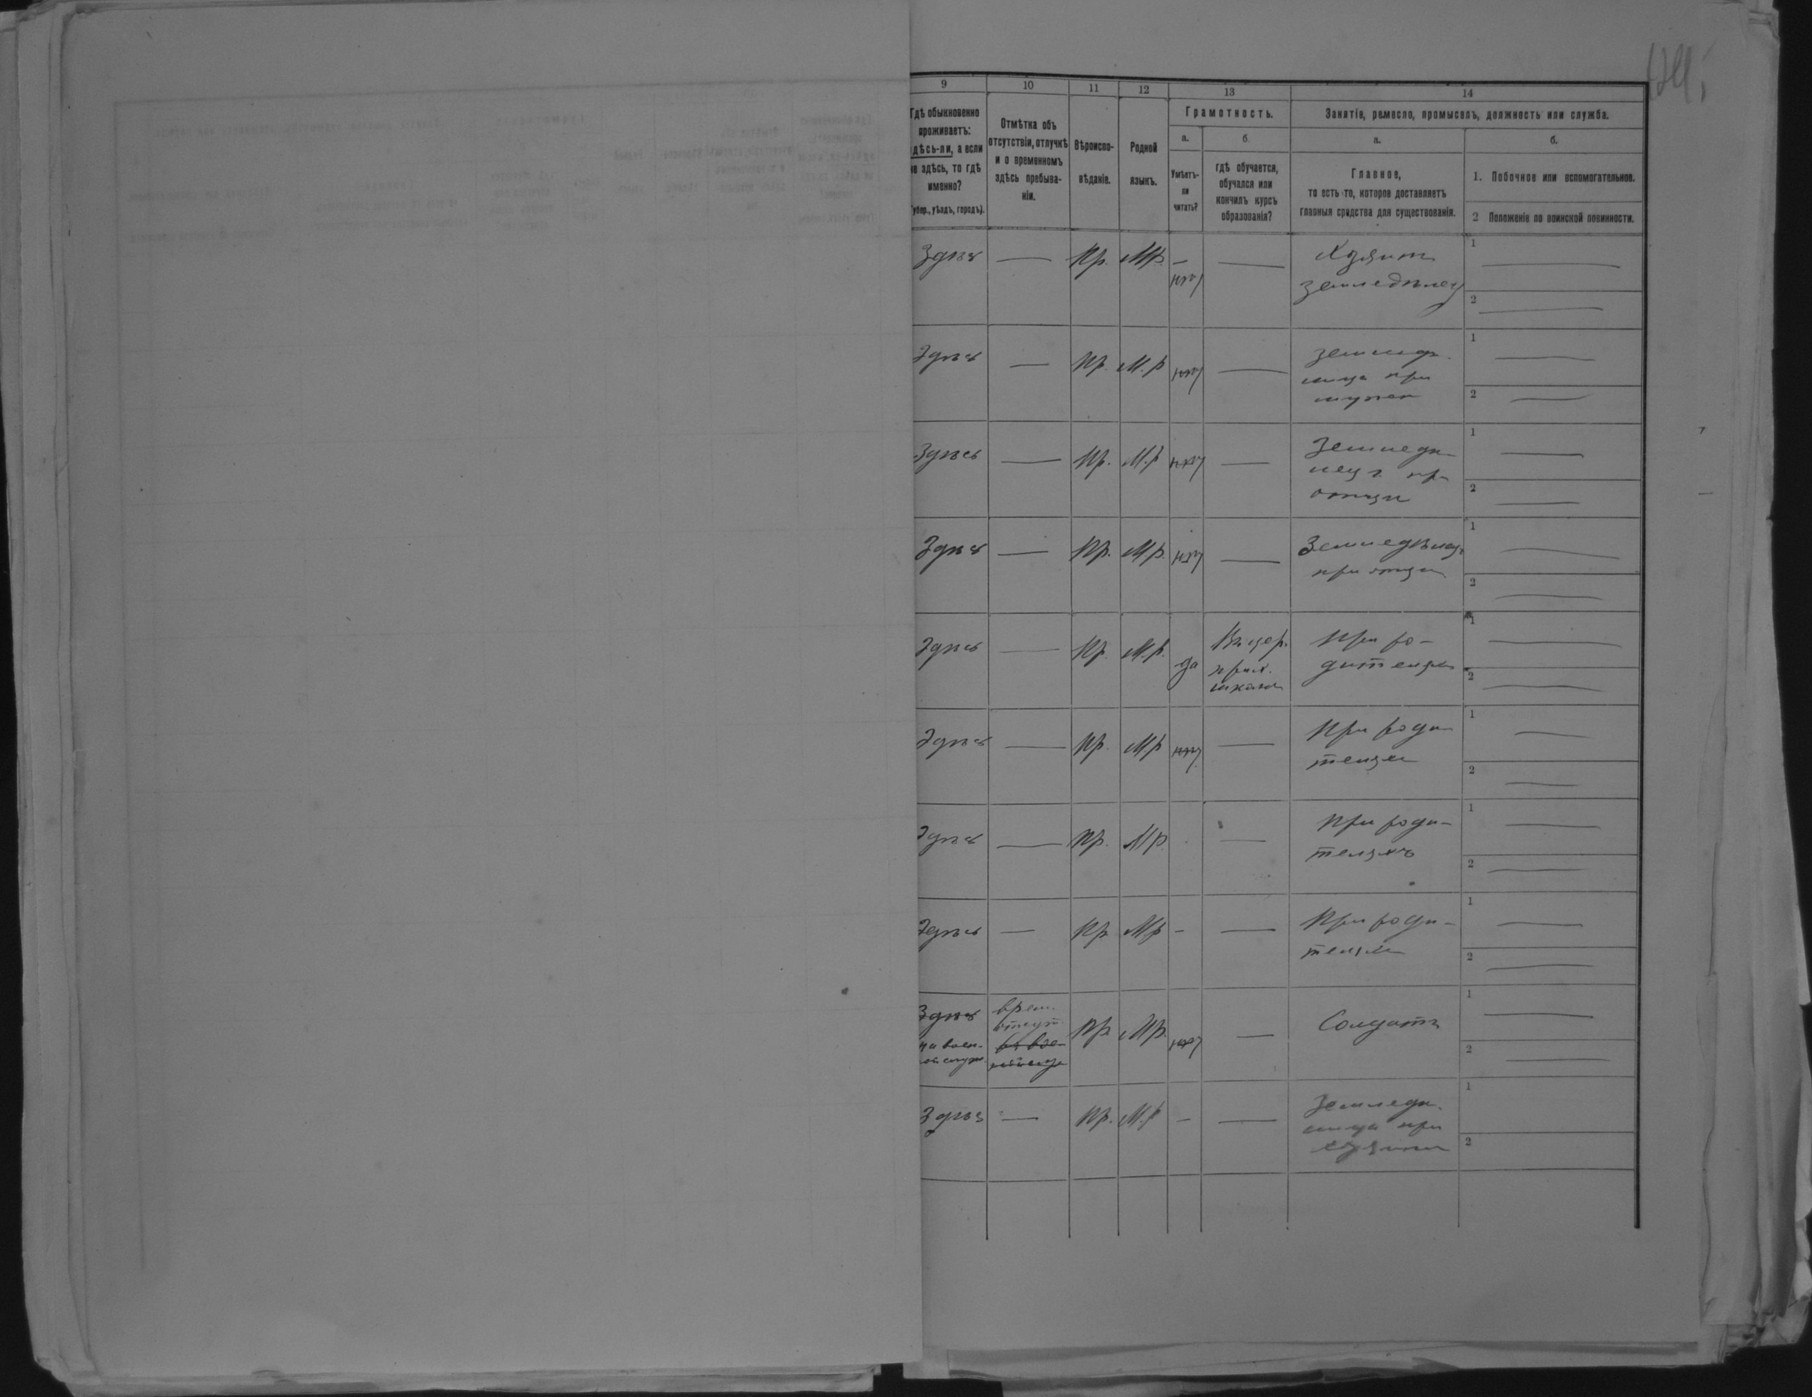 9 10 11 12 13 14
Гдѣ обыкновенно проживаетъ: здѣсь-ли, а если не здѣсь, то гдѣ именно?
(Губер., уѣздъ, городъ).
Отмѣтка объ отсутствіи, отлучкѣ и о временномъ здѣсь пребываніи.
Вѣроисповѣданіе.
Родной языкъ.
Грамотность.
а.
Умѣетъ-ли читать?
б.
гдѣ обучается, обучался или кончилъ курсъ образованія?
Занятіе, ремесло, промыселъ, должность или служба.
а.
Главное,
то есть то, которое доставляетъ
главныя средства для существованія.
б.
1. Побочное или вспомогательное.
2 Положеніе по воинской повинности.
Здѣсь — Пр. Мр. нѣт — Хозяинъ земледѣлец 1 — 2 —
Здѣсь — Пр. М.р нѣт — земледѣлица при мужѣ 1 — 2 —
Здѣсь — Пр. М.р нѣт — Земледѣлец при отцѣ 1 — 2 —
Здѣсь — Пр. М.р. нѣт — Земледѣлец при отцѣ 1 — 2 —
Здѣсь — Пр. М.р. да школѣ При родителях 1 — 2 —
Здѣсь — Пр. Мр нѣт — При родителях 1 — 2 —
Здѣсь — Пр. Мр — При родителяхъ 1 — 2 —
Здѣсь — Пр Мр - — При родителях 1 — 2 —
Здѣсь на воен. врем. отсут. Пр Мр. нѣт — Солдатъ 1 — 2 —
Здѣсь — Пр. М.р - — Земледѣлица при 1 2